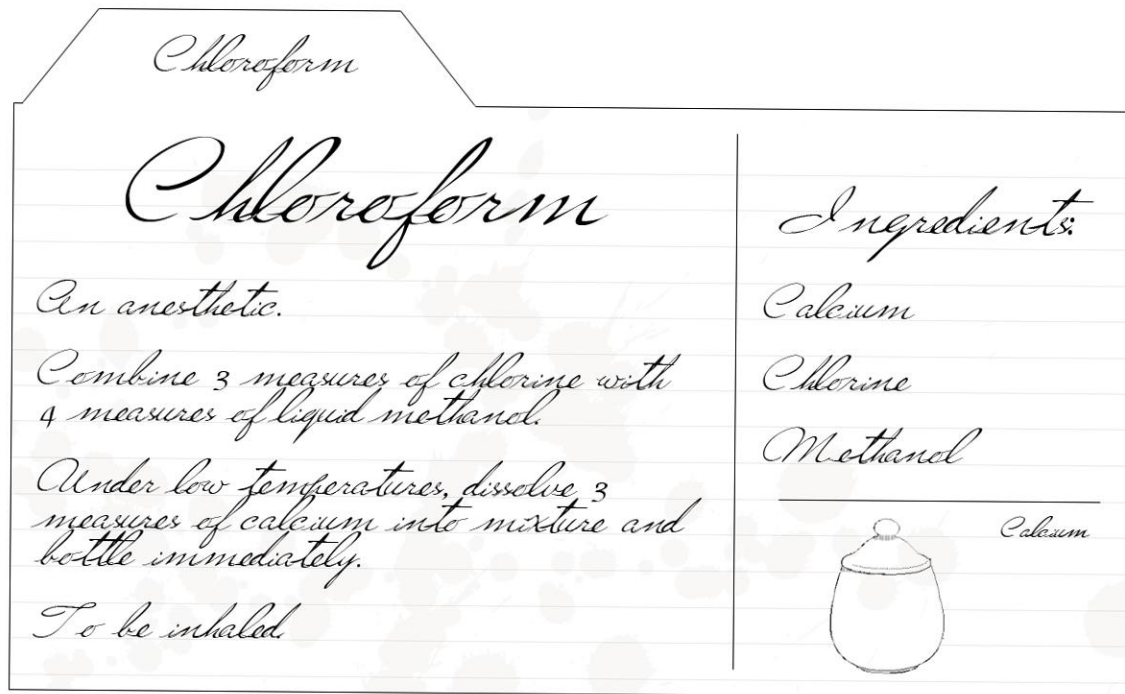 Chloroform
Chloroform
An anesthetic.
Combine 3 measures of chlorine with
4 measures of liquid methanol.
Under low temperatures, dissolve 3
measures of calcium into mixture and
bottle immediately.
To be inhaled.
Ingredients:
Calcium
Chlorine
Methanol
Calcium